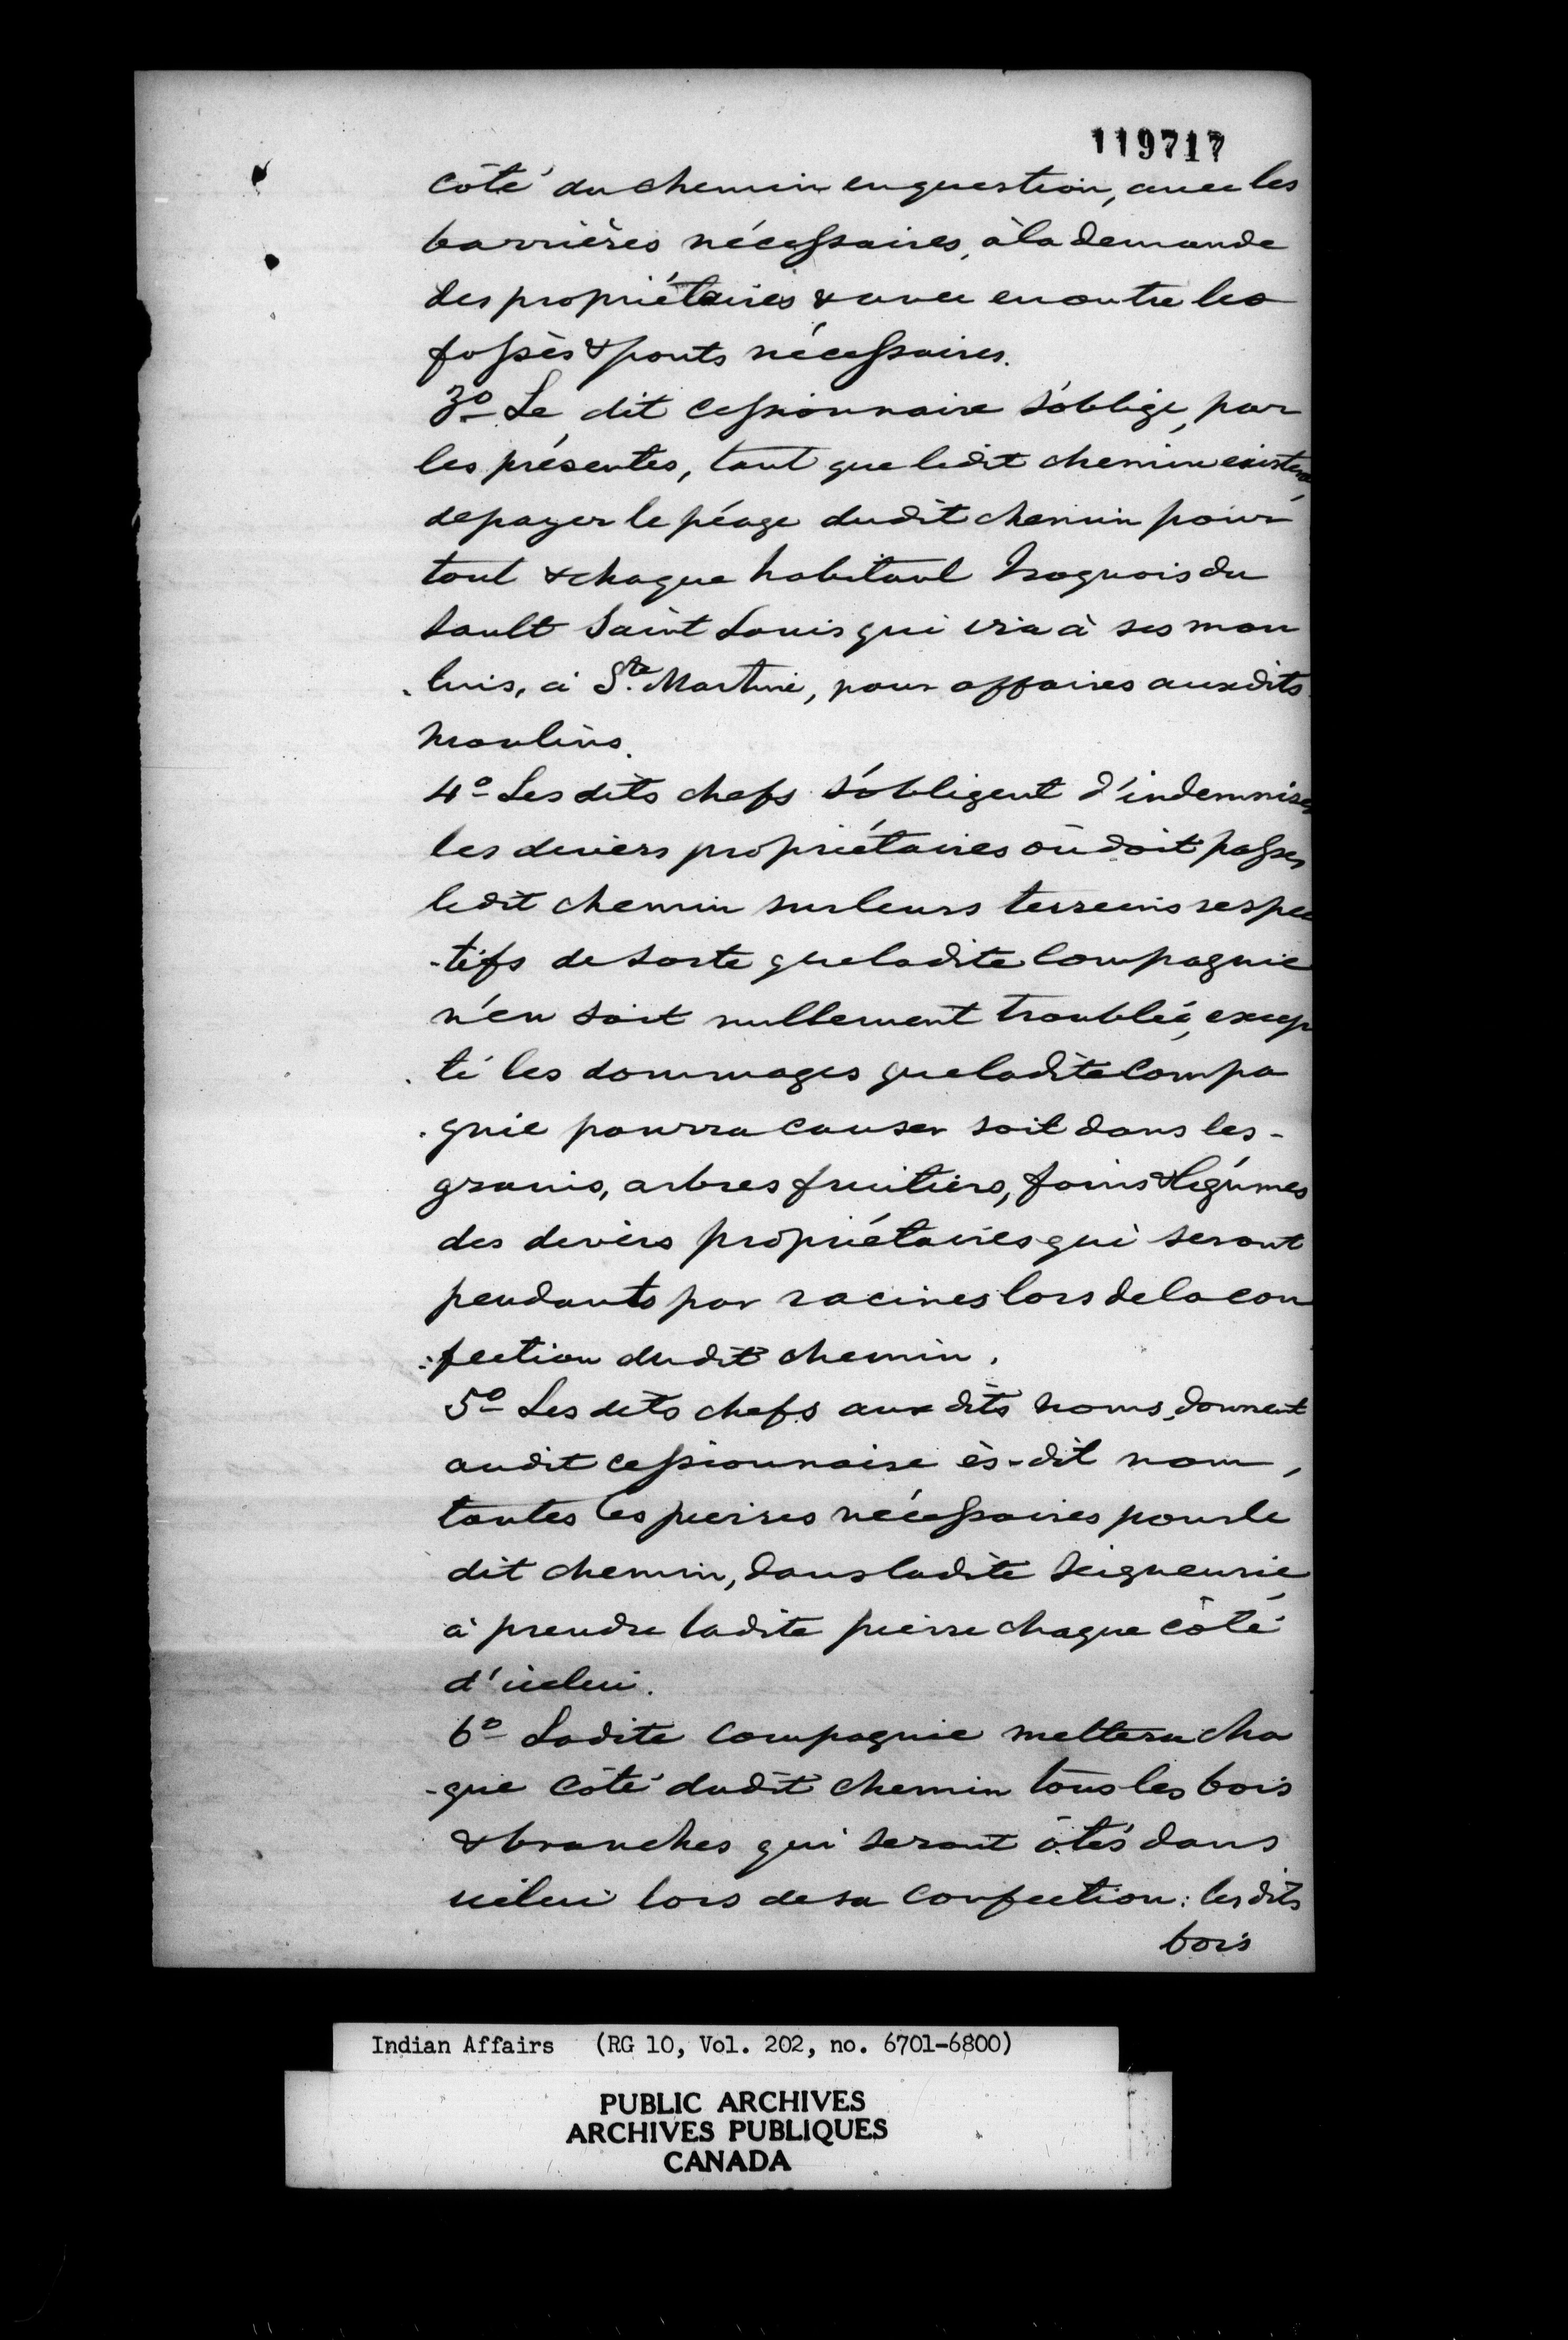 119717
côté du chemin en question, avec les
barrières nécessaires, à la demande
des propriétaires & avec en outre les
fossés & ponts nécessaires.
3º Le dit cessionnaire s'oblige, par
les présentes, tant que ledit chemin existera,
de payer le péage dudit chemin pour
tout & chaque habitant Iroquois du
Sault Saint Louis qui ira à ses mou
-lins, à Ste. Martine, pour affaires auxdits
moulins.
4º Les dits chefs s'obligent d'indemniser
les divers propriétaires où doit passer
ledit chemin sur leurs terrains respec
-tifs de sorte que ladite Compagnie
n'en soit nullement troublée, excep
-té les dommages que ladite Compa
-gnie pourra causer soit dans les -
grains, arbres fruitiers, foins & légumes
des divers propriétaires qui seront
pendants par racines lors de la con
-fection dudit chemin.
5º Les dits chefs aux dits noms, donnent
audit cessionnaire ès-dit nom,
toutes les pierres nécessaires pour le
dit chemin, dans ladite Seigneurie,
à prendre ladite pierre chaque côté
d'icelui.
6º Ladite Compagnie mettera cha
-que côté dudit chemin tous les bois
& branches qui seront ôtés dans
icelui lors de sa confection: les dits
bois
Indian Affairs (RG 10, Vol. 202, no. 6701-6800)
PUBLIC ARCHIVES
ARCHIVES PUBLIQUES
CANADA